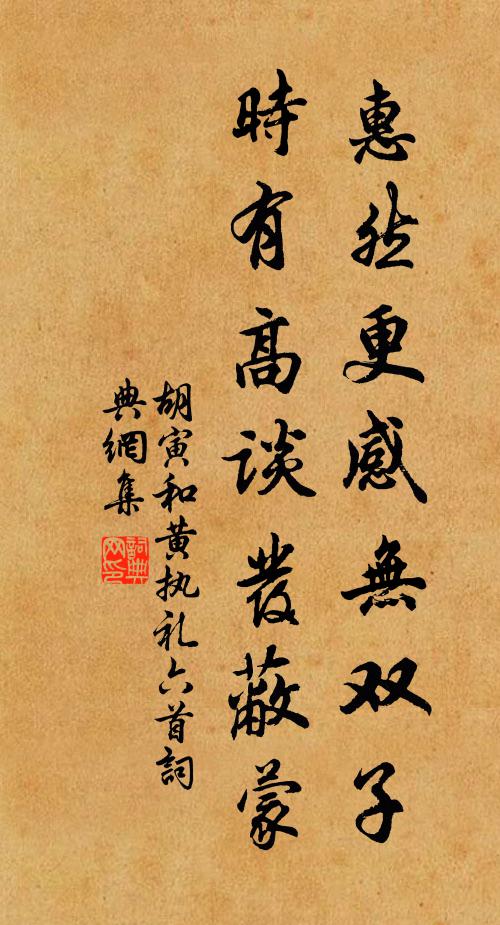 惠然更感無双子
時有高談發蔽蒙
胡寅和黄执礼六首詞
典網集
詞典网印